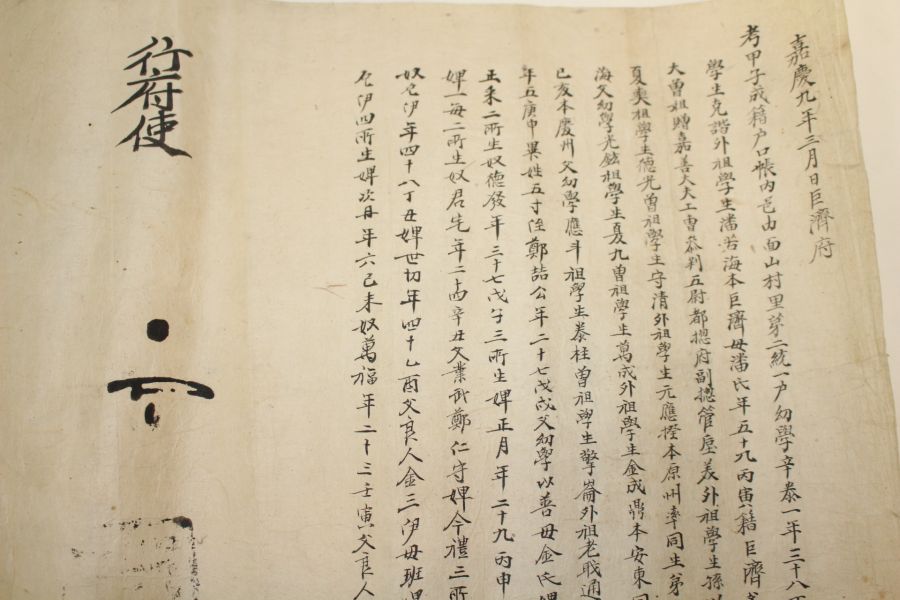 嘉慶九年三月日巨濟府
考甲子成籍戶口帳內邑由面山村里第二統一戶幼學辛泰一年三十八丁
學生克諧外祖學生潘若海本巨濟母潘氏年五十九丙寅籍巨濟
大曾祖贈嘉善大夫工曹參判五尉都摠府副摠管 外祖學生孫
夏奏祖學生德光曾祖學生守清外祖學生元應 本原州率同生弟
海父幼學光鉉祖學生夏九曾祖學生萬成外祖學生金成鼎本安東
己亥本慶州父幼學應斗祖學生泰柱曾祖學生擎崙外祖老職通
年五庚申異姓五寸侄鄭喆公年二十七戊戌父幼學以善母金氏婢
正禾二所生奴德發年三十七戊子三所生婢正月年二十九丙申
婢一每二所生奴君先年二十四辛丑父業武鄭仁守婢今禮三所
奴 伊年四十八丁丑婢世切年四十乙酉父良人金三伊母班婢
伊四所生婢次丹年六己未奴萬福年二十三壬寅父良人
行府使